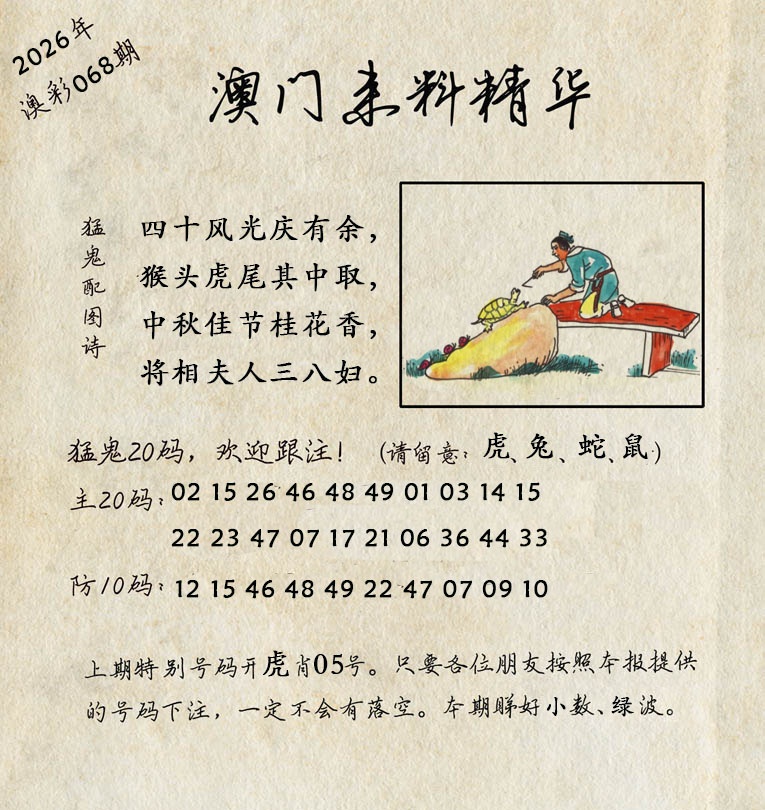 2026年
澳彩068期
澳门来料精华
猛鬼配图诗
四十风光庆有余，
猴头虎尾其中取，
中秋佳节桂花香，
将相夫人三八妇。
猛鬼20码，欢迎跟注！（请留意：虎、兔、蛇、鼠）
主20码：02 15 26 46 48 49 01 03 14 15
22 23 47 07 17 21 06 36 44 33
防10码：12 15 46 48 49 22 47 07 09 10
上期特别号码开虎肖05号。只要各位朋友按照本报提供
的号码下注，一定不会有落空。本期睇好小数、绿波。